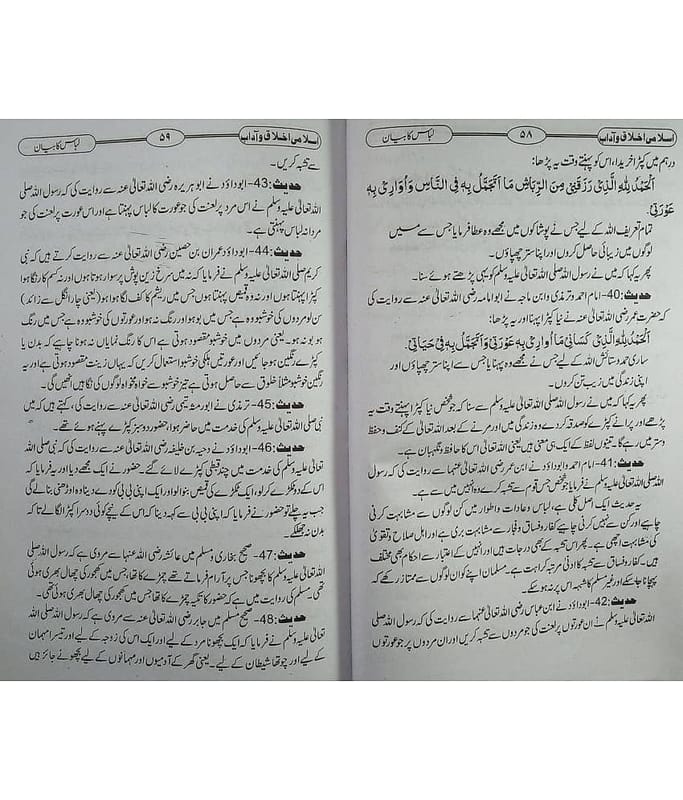 اسلامی اخلاق و آداب ۵۸ لباس کا بیان
درہم میں کپڑا خریدا، اس کو پہنتے وقت یہ پڑھا:
اَلْحَمْدُ لِلّٰہِ الَّذِیْ رَزَقَنِیْ مِنَ الرِّیَاشِ مَا اَتَجَمَّلُ بِہٖ فِی النَّاسِ وَ اُوَارِیْ بِہٖ
عَوْرَتِیْ.
تمام تعریف اللہ کے لیے جس نے پوشاکوں میں مجھے وہ عطا فرمایا جس سے میں
لوگوں میں زیبائی حاصل کروں اور اپنا ستر چھپاؤں۔
پھر یہ کہا کہ میں نے رسول اللہ صلی اللہ تعالیٰ علیہ وسلم کو یہی پڑھتے ہوئے سنا۔
حدیث:40- امام احمد و ترمذی و ابن ماجہ نے ابو امامہ رضی اللہ تعالیٰ عنہ سے روایت کی
کہ حضرت عمر رضی اللہ تعالیٰ عنہ نے نیا کپڑا پہنا اور یہ پڑھا:
اَلْحَمْدُ لِلّٰہِ الَّذِیْ کَسَانِیْ مَا اُوَارِیْ بِہٖ عَوْرَتِیْ وَ اَتَجَمَّلُ بِہٖ فِیْ حَیَاتِیْ.
ساری حمد و ستائش اللہ کے لیے جس نے مجھے وہ پہنایا جس سے اپنا ستر چھپاؤں اور
اپنی زندگی میں زیب تن کروں۔
پھر یہ کہا کہ میں نے رسول اللہ صلی اللہ تعالیٰ علیہ وسلم سے سنا کہ جو شخص نیا کپڑا پہنتے وقت یہ
پڑھے اور پرانے کپڑے کو صدقہ کر دے وہ زندگی میں اور مرنے کے بعد اللہ تعالیٰ کے کنف و حفظ
و ستر میں رہے گا۔ تینوں لفظ کے ایک ہی معنی ہیں یعنی اللہ تعالیٰ اس کا حافظ و نگہبان ہے۔
حدیث:41- امام احمد و ابو داؤد نے ابن عمر رضی اللہ تعالیٰ عنہما سے روایت کی کہ رسول
اللہ صلی اللہ تعالیٰ علیہ وسلم نے فرمایا: جو شخص جس قوم سے تشبہ کرے وہ انہیں میں سے ہے۔
یہ حدیث ایک اصل کلی ہے، لباس و عادات و اطوار میں کن لوگوں سے مشابہت کرنی
چاہیے اور کن سے نہیں کرنی چاہیے کفار و فساق و فجار سے مشابہت بری ہے اور اہل صلاح و تقویٰ
کی مشابہت اچھی ہے۔ پھر اس تشبہ کے بھی درجات ہیں اور انہیں کے اعتبار سے احکام بھی مختلف
ہیں۔ کفار و فساق سے تشبہ کا ادنیٰ مرتبہ کراہت ہے۔ مسلمان اپنے کو ان لوگوں سے ممتاز رکھے کہ
پہچانا جا سکے اور غیر مسلم کا شبہ اس پر نہ ہو سکے۔
حدیث:42- ابو داؤد نے ابن عباس رضی اللہ تعالیٰ عنہما سے روایت کی کہ رسول اللہ صلی
اللہ تعالیٰ علیہ وسلم نے ان عورتوں پر لعنت کی جو مردوں سے تشبہ کریں اور ان مردوں پر جو عورتوں
اسلامی اخلاق و آداب ۵۹ لباس کا بیان
سے تشبہ کریں۔
حدیث:43- ابو داؤد نے ابو ہریرہ رضی اللہ تعالیٰ عنہ سے روایت کی کہ رسول اللہ صلی
اللہ تعالیٰ علیہ وسلم نے اس مرد پر لعنت کی جو عورت کا لباس پہنتا ہے اور اس عورت پر لعنت کی جو
مردانہ لباس پہنتی ہے۔
حدیث:44- ابو داؤد عمران بن حصین رضی اللہ تعالیٰ عنہ سے روایت کرتے ہیں کہ نبی
کریم صلی اللہ تعالیٰ علیہ وسلم نے فرمایا کہ نہ میں سرخ زین پوش پر سوار ہوتا ہوں اور نہ کسم کا رنگا ہوا
کپڑا پہنتا ہوں اور نہ وہ قمیص پہنتا ہوں جس میں ریشم کا کف لگا ہوا ہو (یعنی چار انگل سے زائد)
سن لو مردوں کی خوشبو وہ ہے جس میں بو ہو اور رنگ نہ ہو اور عورتوں کی خوشبو وہ ہے جس میں رنگ
ہو بو نہ ہو۔ یعنی مردوں میں خوشبو مقصود ہوتی ہے اس کا رنگ نمایاں نہ ہونا چاہیے کہ بدن یا
کپڑے رنگین ہو جائیں اور عورتیں ہلکی خوشبو استعمال کریں کہ یہاں زینت مقصود ہوتی ہے اور یہ
رنگین خوشبو مثلاً خلوق سے حاصل ہوتی ہے تیز خوشبو سے خواہ مخواہ لوگوں کی نگاہیں اٹھیں گی۔
حدیث:45- ترمذی نے ابو رمثہ تیمی رضی اللہ تعالیٰ عنہ سے روایت کی، کہتے ہیں کہ میں
نبی صلی اللہ تعالیٰ علیہ وسلم کی خدمت میں حاضر ہوا، حضور دو سبز کپڑے پہنے ہوئے تھے۔
حدیث:46- ابو داؤد نے دحیہ بن خلیفہ رضی اللہ تعالیٰ عنہ سے روایت کی کہ نبی صلی اللہ
تعالیٰ علیہ وسلم کی خدمت میں چند قبطی کپڑے لائے گئے۔ حضور نے ایک مجھے دیا اور یہ فرمایا کہ
اس کے دو ٹکڑے کر لو، ایک ٹکڑے کی قمیص بنوا لو اور ایک اپنی بی بی کو دے دینا وہ اوڑھنی بنا لے گی
جب یہ چلے تو حضور نے فرمایا کہ اپنی بی بی سے کہہ دینا کہ اس کے نیچے کوئی دوسرا کپڑا لگا لے تا کہ
بدن نہ جھلکے۔
حدیث:47- صحیح بخاری و مسلم میں عائشہ رضی اللہ عنہا سے مروی ہے کہ رسول اللہ صلی
اللہ تعالیٰ علیہ وسلم کا بچھونا جس پر آرام فرماتے تھے چمڑے کا تھا، جس میں کھجور کی چھال بھری ہوئی
تھی۔ مسلم کی روایت میں ہے کہ حضور کا تکیہ چمڑے کا تھا، جس میں کھجور کی چھال بھری ہوئی تھی۔
حدیث:48- صحیح مسلم میں جابر رضی اللہ تعالیٰ عنہ سے مروی ہے کہ رسول اللہ صلی اللہ
تعالیٰ علیہ وسلم نے فرمایا کہ ایک بچھونا مرد کے لیے اور ایک اس کی زوجہ کے لیے اور تیسرا مہمان
کے لیے اور چوتھا شیطان کے لیے۔ یعنی گھر کے آدمیوں اور مہمانوں کے لیے بچھونے جائز ہیں